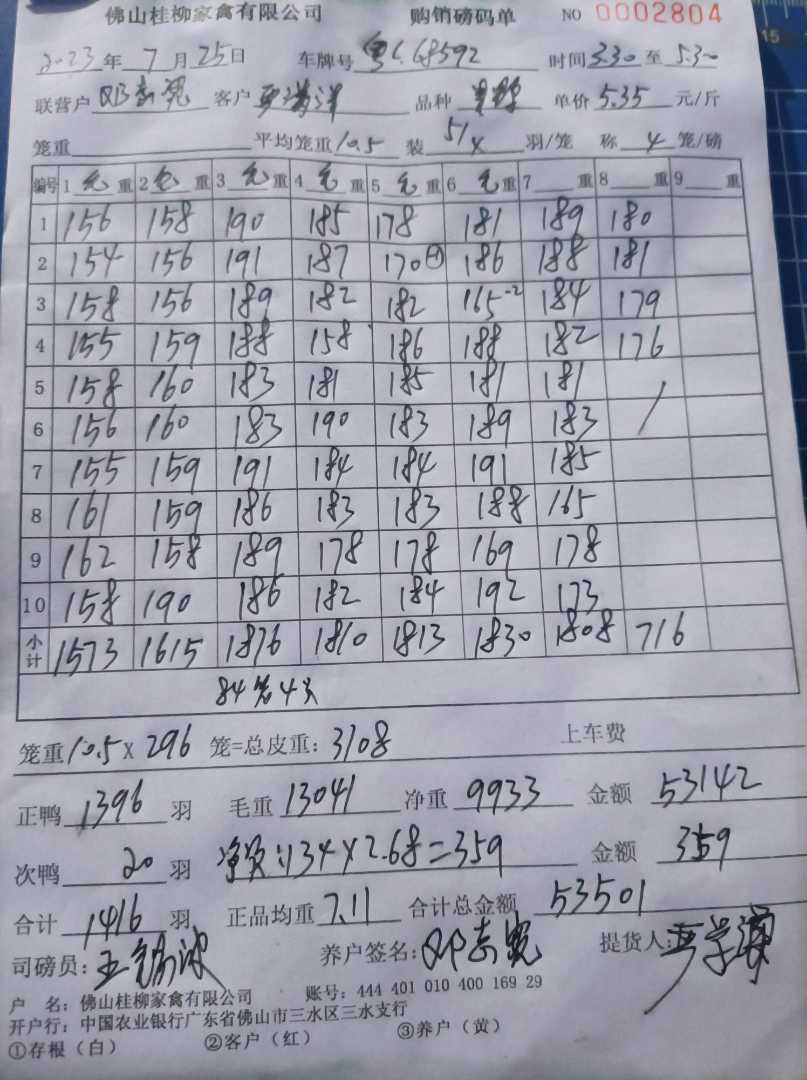 佛山桂柳家禽有限公司 购销磅码单 NO 0002804
2023年7月25日 车牌号 粤L68592 时间3.30至5.30
联营户 邓志宽 客户 品种 单价5.35元/斤
笼重 平均笼重10.5 装 5/x 羽/笼 称 4 笼/磅
编号 1 毛 重 2 毛 重 3 毛 重 4 毛 重 5 毛 重 6 毛 重 7 重 8 重 9 重
1 156 158 190 185 178 181 189 180
2 154 156 191 187 170 186 188 181
3 158 156 189 182 182 165-2 184 179
4 155 159 188 158 186 188 182 176
5 158 160 183 181 185 181 181 /
6 156 160 183 190 183 189 183
7 155 159 191 184 184 191 185
8 161 159 186 183 183 188 165
9 162 158 189 178 178 169 178
10 158 190 186 182 184 192 173
小计 1573 1615 1876 1810 1813 1830 1808 716
84笼4头
笼重10.5X296 笼=总皮重:3108 上车费
正鸭 1396 羽 毛重 13041 净重 9933 金额 53142
次鸭 20 羽 净重:134X2.68=359 金额 359
合计 1416 羽 正品均重 7.11 合计总金额 53501
司磅员: 养户签名:邓志宽 提货人:
户 名:佛山桂柳家禽有限公司 账号:444 401 010 400 169 29
开户行:中国农业银行广东省佛山市三水区三水支行
①存根(白) ②客户(红) ③养户(黄)